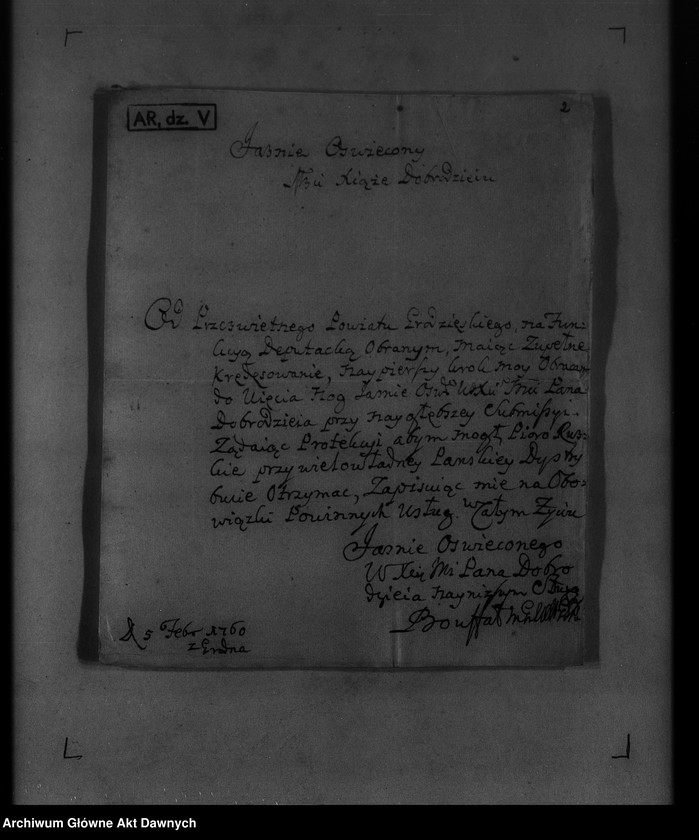 AR, dz. V
2
Jasnie Oswiecony
Mci Xiąże Dobrodzieiu
Od Przeswietnego Powiatu Grodzięskiego, na Fun:
kcyą Deputacką Obranym, maiąc Zupełne
Kredęsowanie, Naypierszy krok moy Obracam
do Uięcia Nog Jasnie Osw. WXci Mci Pana
Dobrodzieia przy naygłębszey Submissyi.
Ządaiąc Protekcyi abym mogł Pioro Rus:
kie przy wielowładney Panskiey Dyspoy
bucie Otrzymac, Zapisuiąc mie na Obo:
wiązki Powinnych Usług. w Całym Zyciu
Jasnie Oswieconego
W Xcy Mci Pana Dobro
dzieia Nayniszym Sługą
Bouffał
D 5 Febr 1760
z Grodna
Archiwum Główne Akt Dawnych